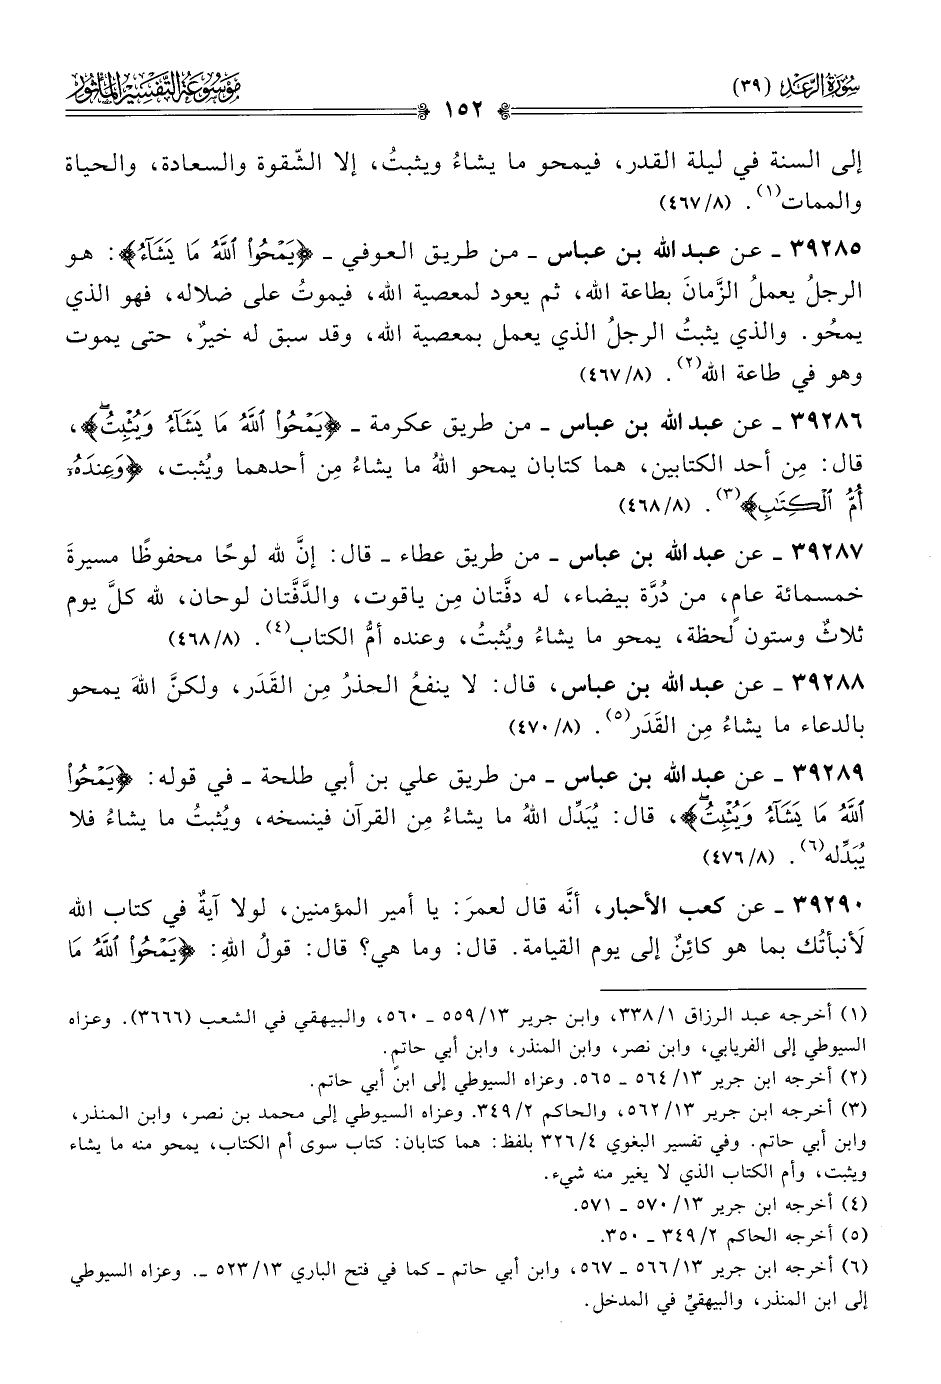 سُورَةُ الرَّعْدِ (٣٩)
١٥٢
مَوْسُوعَة التَّفْسِير المَأثُور
إلى السنة في ليلة القدر، فيمحو ما يشاءُ ويثبتُ، إلا الشّقوة والسعادة، والحياة
والممات(١). (٤٦٧/٨)
٣٩٢٨٥ ـ عن عبدالله بن عباس ـ من طريق العوفي ـ ﴿يَمْحُوا۟ ٱللَّهُ مَا يَشَآءُ﴾: هو
الرجلُ يعملُ الزَّمانَ بطاعة الله، ثم يعود لمعصية الله، فيموتُ على ضلاله، فهو الذي
يمحُو. والذي يثبتُ الرجلُ الذي يعمل بمعصية الله، وقد سبق له خيرٌ، حتى يموت
وهو في طاعة الله(٢). (٤٦٧/٨)
٣٩٢٨٦ ـ عن عبدالله بن عباس ـ من طريق عكرمة ـ ﴿يَمْحُوا۟ ٱللَّهُ مَا يَشَآءُ وَيُثْبِتُۖ﴾،
قال: مِن أحد الكتابين، هما كتابان يمحو اللهُ ما يشاءُ مِن أحدهما ويُثبت، ﴿وَعِندَهُۥٓ
أُمُّ ٱلْكِتَٰبِ﴾(٣). (٤٦٨/٨)
٣٩٢٨٧ ـ عن عبدالله بن عباس ـ من طريق عطاء ـ قال: إنَّ لله لوحًا محفوظًا مسيرةَ
خمسمائة عامٍ، من دُرَّة بيضاء، له دفَّتان مِن ياقوت، والدَّفَّتان لوحان، لله كلَّ يوم
ثلاثٌ وستون لحظة، يمحو ما يشاءُ ويُثبتُ، وعنده أمُّ الكتاب(٤). (٤٦٨/٨)
٣٩٢٨٨ ـ عن عبدالله بن عباس، قال: لا ينفعُ الحذرُ مِن القَدَر، ولكنَّ اللهَ يمحو
بالدعاء ما يشاءُ مِن القَدَر(٥). (٤٧٠/٨)
٣٩٢٨٩ ـ عن عبدالله بن عباس ـ من طريق علي بن أبي طلحة ـ في قوله: ﴿يَمْحُوا۟
ٱللَّهُ مَا يَشَآءُ وَيُثْبِتُۖ﴾، قال: يُبَدِّل اللهُ ما يشاءُ مِن القرآن فينسخه، ويُثبتُ ما يشاءُ فلا
يُبَدِّله(٦). (٤٧٦/٨)
٣٩٢٩٠ ـ عن كعب الأحبار، أنَّه قال لعمرَ: يا أمير المؤمنين، لولا آيةٌ في كتاب الله
لَأنبأتُك بما هو كائِنٌ إلى يوم القيامة. قال: وما هي؟ قال: قولُ اللهِ: ﴿يَمْحُوا۟ ٱللَّهُ مَا
(١) أخرجه عبد الرزاق ٣٣٨/١، وابن جرير ٥٥٩/١٣ ـ ٥٦٠، والبيهقي في الشعب (٣٦٦٦). وعزاه
السيوطي إلى الفريابي، وابن نصر، وابن المنذر، وابن أبي حاتم.
(٢) أخرجه ابن جرير ٥٦٤/١٣ ـ ٥٦٥. وعزاه السيوطي إلى ابن أبي حاتم.
(٣) أخرجه ابن جرير ٥٦٢/١٣، والحاكم ٣٤٩/٢. وعزاه السيوطي إلى محمد بن نصر، وابن المنذر،
وابن أبي حاتم. وفي تفسير البغوي ٣٢٦/٤ بلفظ: هما كتابان: كتاب سوى أم الكتاب، يمحو منه ما يشاء
ويثبت، وأم الكتاب الذي لا يغير منه شيء.
(٤) أخرجه ابن جرير ٥٧٠/١٣ ـ ٥٧١.
(٥) أخرجه الحاكم ٣٤٩/٢ ـ ٣٥٠.
(٦) أخرجه ابن جرير ٥٦٦/١٣ ـ ٥٦٧، وابن أبي حاتم ـ كما في فتح الباري ٥٢٣/١٣ ـ. وعزاه السيوطي
إلى ابن المنذر، والبيهقيّ في المدخل.